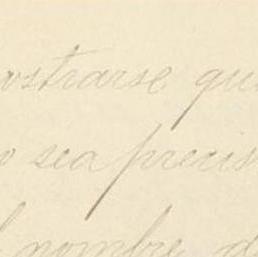 ostrarse qu
o sea precis
l nombre d